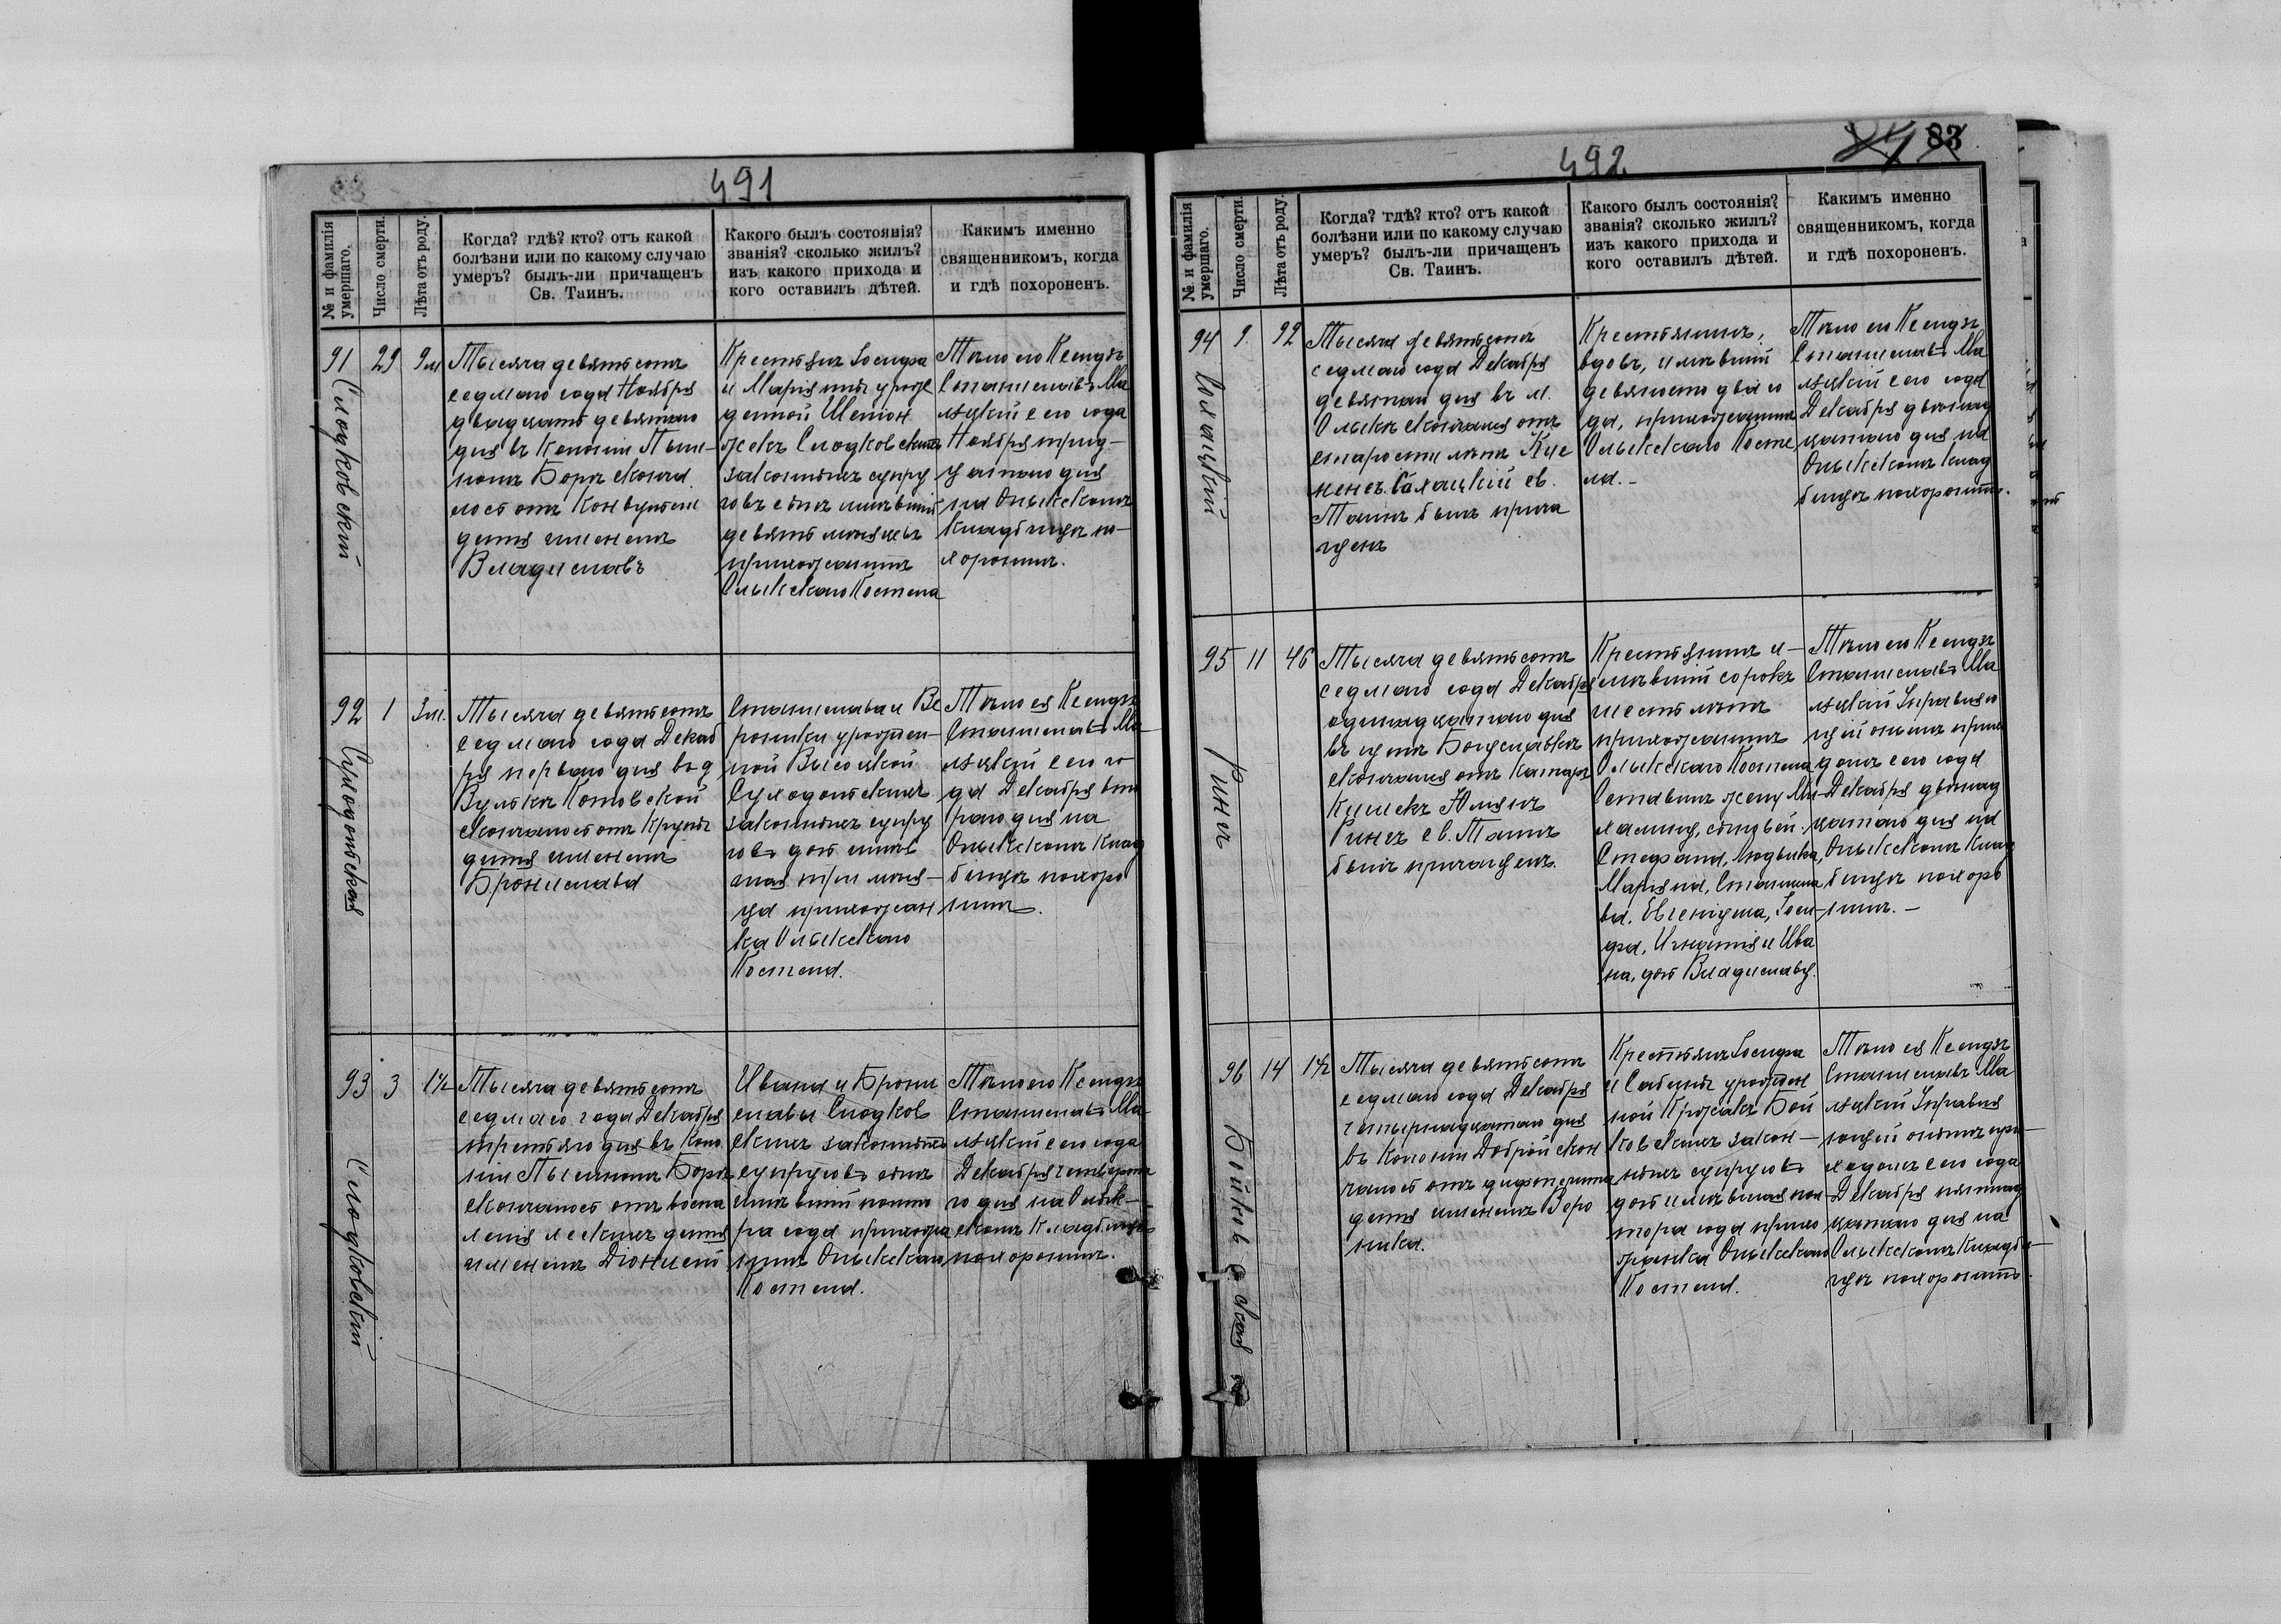 491
№ и фамилія умершаго.
Число смерти.
Лѣта отъ роду.
Когда? гдѣ? кто? отъ какой
болѣзни или по какому случаю
умеръ? былъ-ли причащенъ
Св. Таинъ.
Какого былъ состоянія?
званія? сколько жилъ?
изъ какого прихода и
кого оставилъ дѣтей.
Какимъ именно
священникомъ, когда
и гдѣ похороненъ.
91
Слодковскій
29
9 м
Тысяча девятьсотъ
седьмаго года Ноября
двадцать девятаго
дня въ Колоніи
Боръ сконча
лось отъ Конвульсіи
дитя именемъ
Владиславъ
Крестьянъ Іосифа
и Маріанны урож
денной
Слодковскихъ
законныхъ супру
говъ сынъ имѣвшій
девять мѣсяцевъ
прихожанинъ
Олыкскаго Костела
Тѣло его Ксендзъ
Станиславъ Ма
лѣцкій сего года
Ноября трид-
цатаго дня
на Олыкскомъ
Кладбищѣ по-
хоронилъ.
92
Суходольская
1
3 м.
Тысяча девятьсотъ
седьмаго года Декаб
ря перваго дня въ д
Вулькѣ Котовской
скончалось отъ Крупа
дитя именемъ
Бронислава
Станислава и Ве
роники урожден-
ной Высоцкой
Суходольскихъ
законныхъ супру
говъ дочь имѣв
шая три мѣся-
ца прихожан
ка Олыкскаго
Костела.
Тѣло ея Ксендзъ
Станиславъ Ма-
лѣцкій сего го
да Декабря вто
раго дня на
Олыкскомъ Клад
бищѣ похоро
нилъ.
93
Слодковскій
3
1½
Тысяча девятьсотъ
седьмаго года Декабря
третьяго дня въ Коло
ніи Боръ
скончалось отъ воспа
ленія легкихъ дитя
именемъ Діонисій
Ивана и Брони
славы Слодков
скихъ законныхъ
супруговъ сынъ
имѣвшій полто
ра года прихожа
нинъ Олыкскаго
Костела.
Тѣло его Ксендзъ
Станиславъ Ма-
лѣцкій сего года
Декабря четверта
го дня на Олык-
скомъ Кладбищѣ
похоронилъ.
492
83
№ и фамилія умершаго.
Число смерти.
Лѣта отъ роду.
Когда? гдѣ? кто? отъ какой
болѣзни или по какому случаю
умеръ? былъ-ли причащенъ
Св. Таинъ.
Какого былъ состоянія?
званія? сколько жилъ?
изъ какого прихода и
кого оставилъ дѣтей.
Какимъ именно
священникомъ, когда
и гдѣ похороненъ.
94
9.
92
Тысяча девятьсотъ
седьмаго года Декабря
девятаго дня въ м.
Олыкѣ скончался отъ
старости лѣтъ
св.
Таинъ былъ прича
щенъ
Крестьянинъ,
вдовъ, имѣвшій
девяносто два го
да, прихожанинъ
Олыкскаго Косте
ла.-
Тѣло его Ксендзъ
Станиславъ Ма
лѣцкій сего года
Декабря двѣнад
цатаго дня на
Олыкскомъ Клад
бищѣ похоронилъ.
95
Ринг
11
46
Тысяча девятьсотъ
седьмаго года Декабря
одиннадцатаго дня
въ цуть Богуславкѣ
скончался отъ катара
Кишекъ Юліянъ
Рингъ св. Таинъ
былъ причащенъ.
Крестьянинъ и-
мѣвшій сорокъ
шесть лѣтъ
прихожанинъ
Олыкскаго Костела
Оставилъ жену Ми-
халину, сыновей:
Стефана, Людвика,
Маріяна, Станисла
ва, Евгеніуша, Іоси-
фа, Игнатія и Ива
на, дочь Владиславу.
Тѣло его Ксендзъ
Станиславъ Ма
лѣцкій Управляю
щій онымъ прихо
домъ сего года
Декабря двѣнад
цатаго дня на
Олыкскомъ Клад
бищѣ похоро
нилъ.-
96
Бойковская
14
1½
Тысяча девятьсотъ
седьмаго года Декабря
четырнадцатаго дня
въ Колоніи Доброй скон
чалось отъ дифтерита
дитя именемъ Веро
ника.
Крестьянъ Іосифа
и Сабины урожден
ной Бой
ковскихъ закон-
ныхъ супруговъ
дочь имѣвшая пол
тора года прихо
жанка Олыкскаго
Костела.
Тѣло ея Ксендзъ
Станиславъ Ма
лѣцкій Управля
ющій онымъ при-
ходомъ сего года
Декабря пятнад
цатаго дня на
Олыкскомъ Кладби-
щѣ похоронилъ.